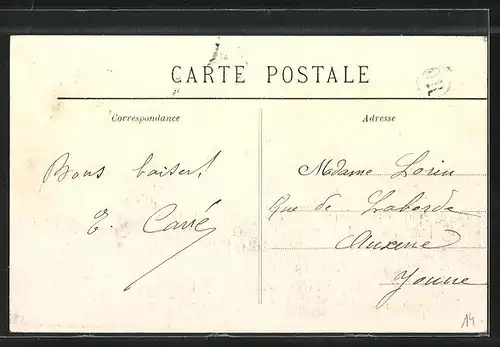 CARTE POSTALE
Correspondance
Adresse
Bons baisers!
E. Carré
Madame Lorin
Rue de Laborde
Auxerre
Yonne
14